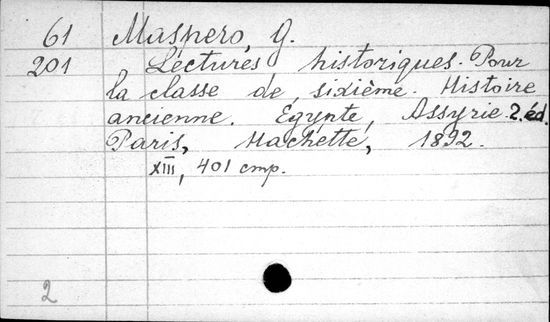 61 Maspero, G.
201 Lectures historiques. Pour
la classe de sixième. Histoire
ancienne. Egypte, Assyrie. 2. éd.
Paris, Hachette, 1892.
XIII, 401 стр.
2